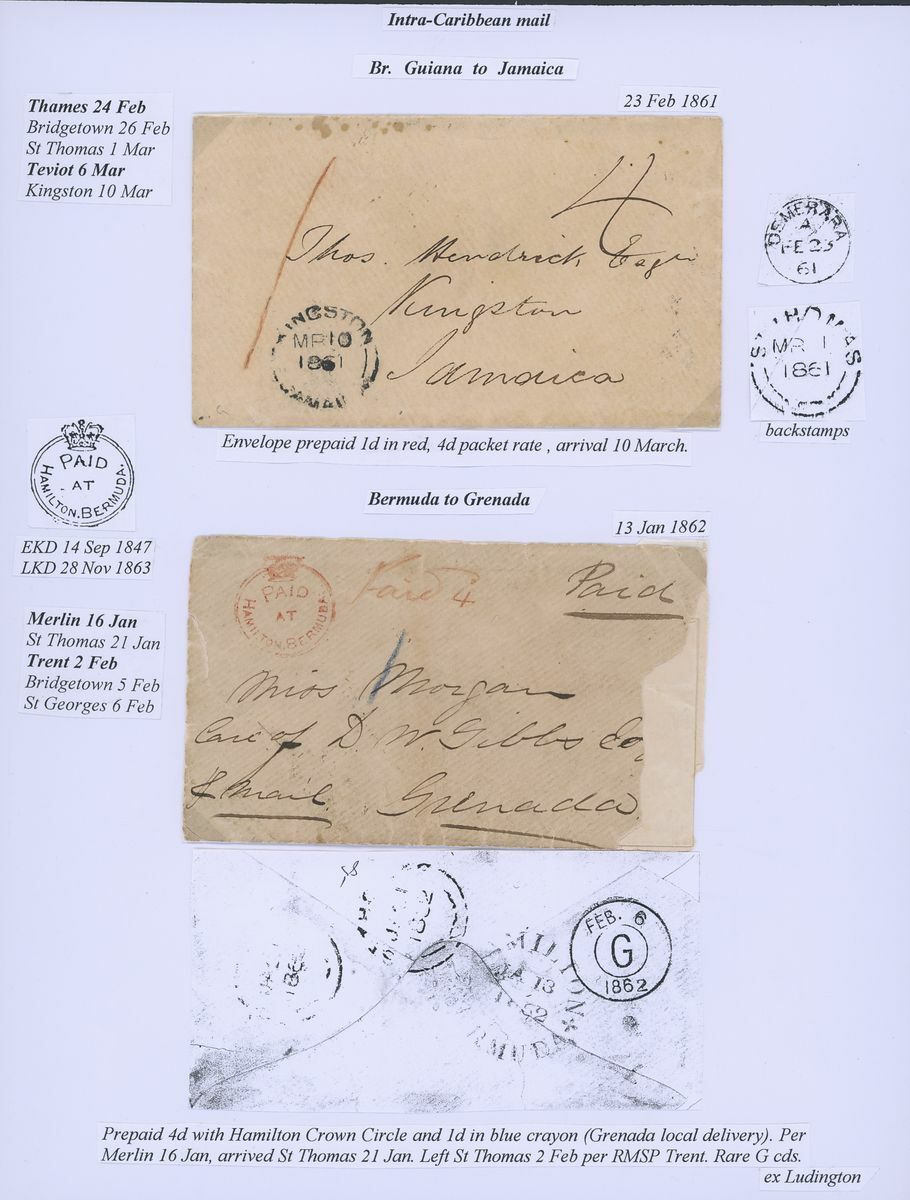 Intra-Caribbean mail
Br. Guiana to Jamaica
23 Feb 1861
Thames 24 Feb
Bridgetown 26 Feb
St Thomas 1 Mar
Teviot 6 Mar
Kingston 10 Mar
4
Thos. Hendrick Esqr
Kingston
Jamaica
KINGSTON
MR 10
1861
DEMERARA
A
FE 23
61
ST THOMAS
MR 1
1861
backstamps
Envelope prepaid 1d in red, 4d packet rate , arrival 10 March.
PAID
AT
HAMILTON.BERMUDA.
EKD 14 Sep 1847
LKD 28 Nov 1863
Bermuda to Grenada
13 Jan 1862
Merlin 16 Jan
St Thomas 21 Jan
Trent 2 Feb
Bridgetown 5 Feb
St Georges 6 Feb
PAID
AT
HAMILTON.BERMUDA
Paid 4
Paid
Miss Morgan
Care of D. W. Gibbs Esq
Mail Grenada
1862
186
HAMILTON
JA 13
1862
BERMUDA
FEB. 6
G
1862
Prepaid 4d with Hamilton Crown Circle and 1d in blue crayon (Grenada local delivery). Per
Merlin 16 Jan, arrived St Thomas 21 Jan. Left St Thomas 2 Feb per RMSP Trent. Rare G cds.
ex Ludington